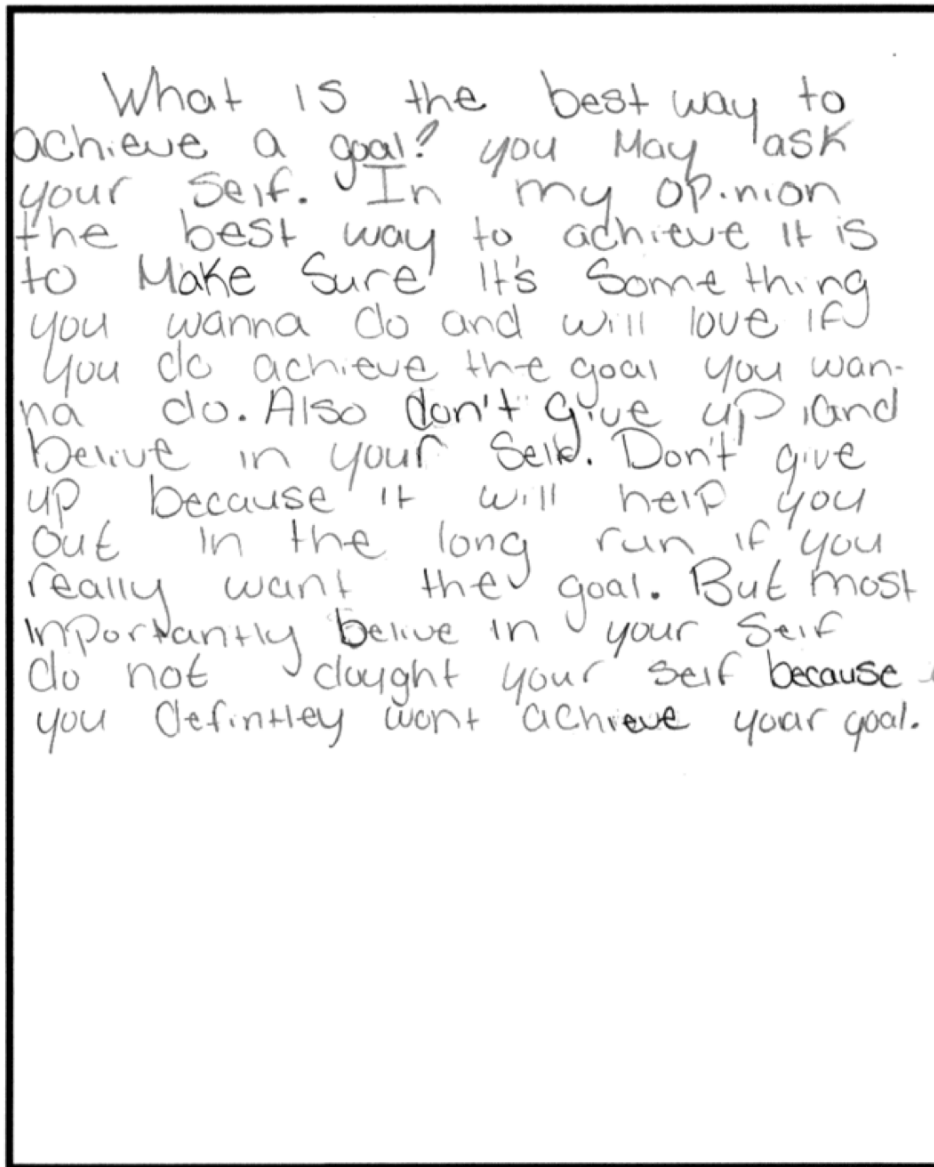 What is the best way to
achieve a goal? you May ask
your self. In my opinion
the best way to achieve it is
to Make Sure it's Some thing
you wanna do and will love if
you do achieve the goal you wan-
na do. Also don't give up, and
belive in your Self. Don't give
up because it will help you
out in the long run if you
really want the goal. But most
inportantly belive in your self
do not dought your self because
you defintley wont achieve your goal.